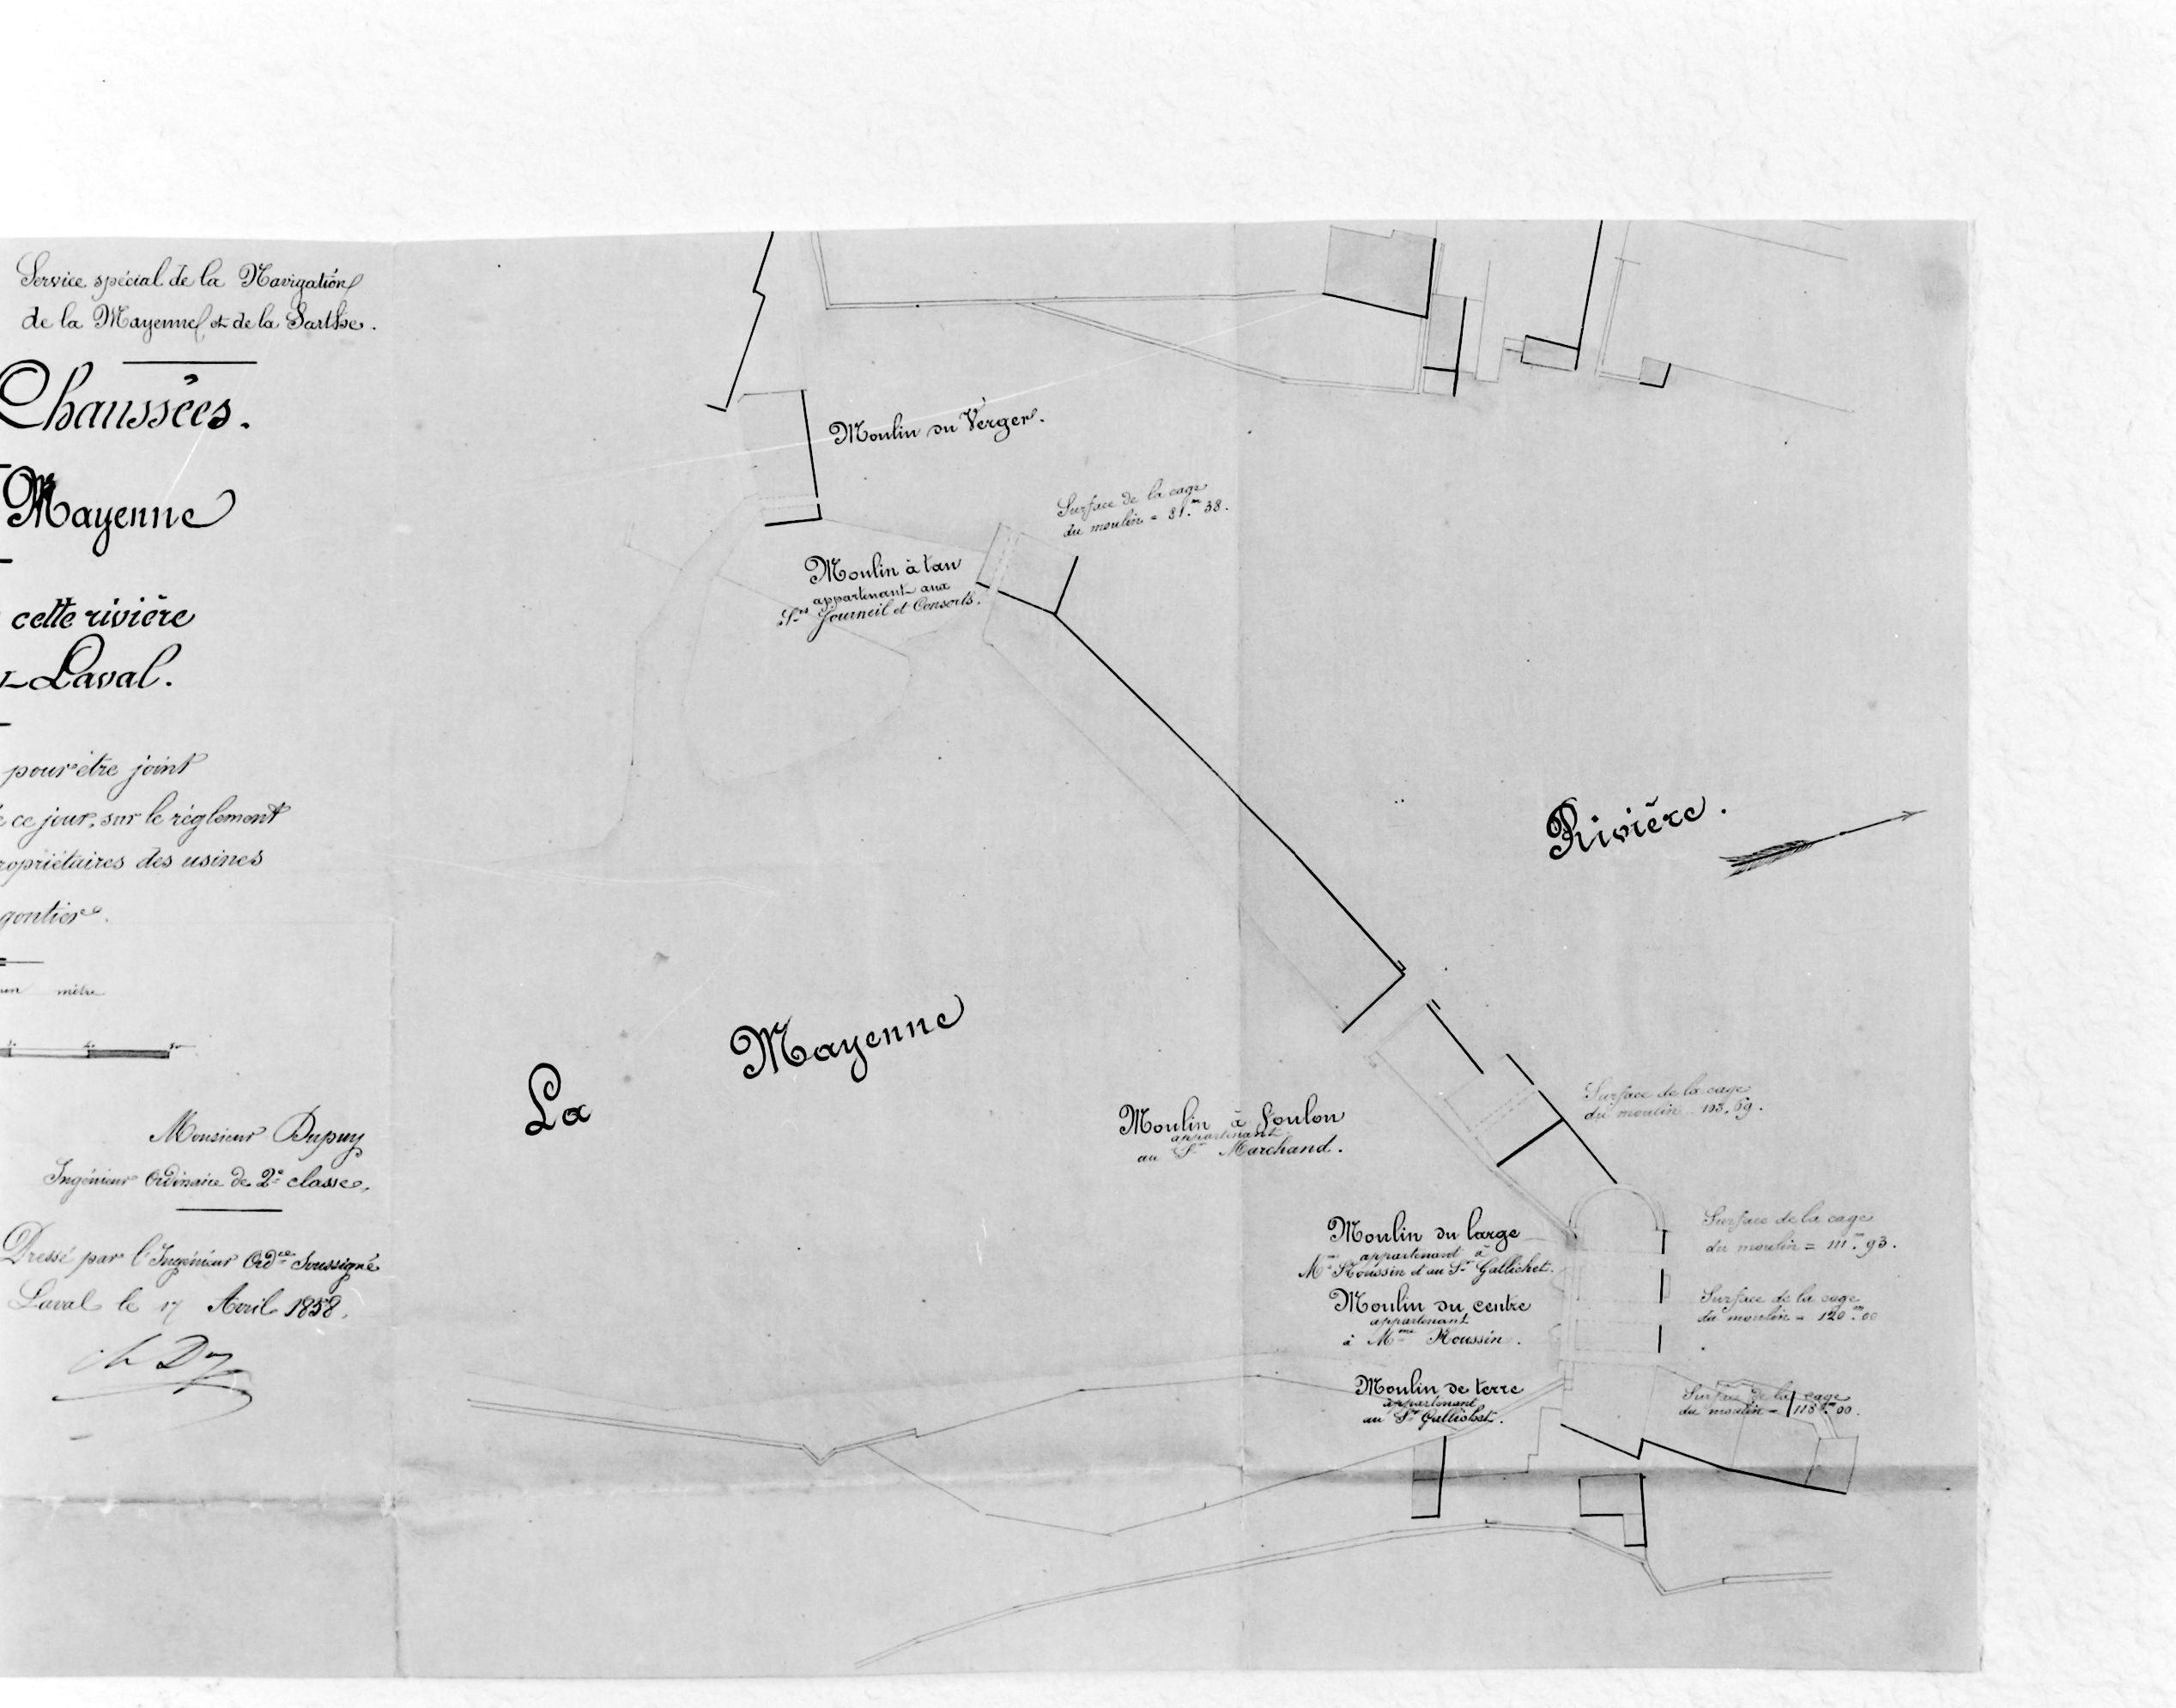 Service spécial de la Navigation
de la Mayenne et de la Sarthe.
Chaussées.
Mayenne
cette rivière
Laval.
pour être joint
ce jour, sur le règlement
ropriétaires des usines
gontier.
mètre
Monsieur Dupuy
Ingénieur Ordinaire de 2e classe.
Dressé par l'Ingénieur Ordre Soussigné
Laval le 17 Avril 1858.
Moulin du Verger.
Surface de la cage
du moulin = 81.m 38.
Moulin à tan
appartenant aux
Srs Journeil et Consorts.
Rivière.
La Mayenne
Surface de la cage
du moulin 103.69.
Moulin à foulon
appartenant
au Sr Marchand.
Moulin du large
appartenant à
Mme Roussin et au Sr Gallichet.
Surface de la cage
du moulin = 111.m 93.
Moulin du centre
appartenant
à Mme Roussin.
Surface de la cage
du moulin = 120.m 00
Moulin de terre
appartenant
au Sr Gallichet.
Surface de la cage
du moulin = 118.m 00.